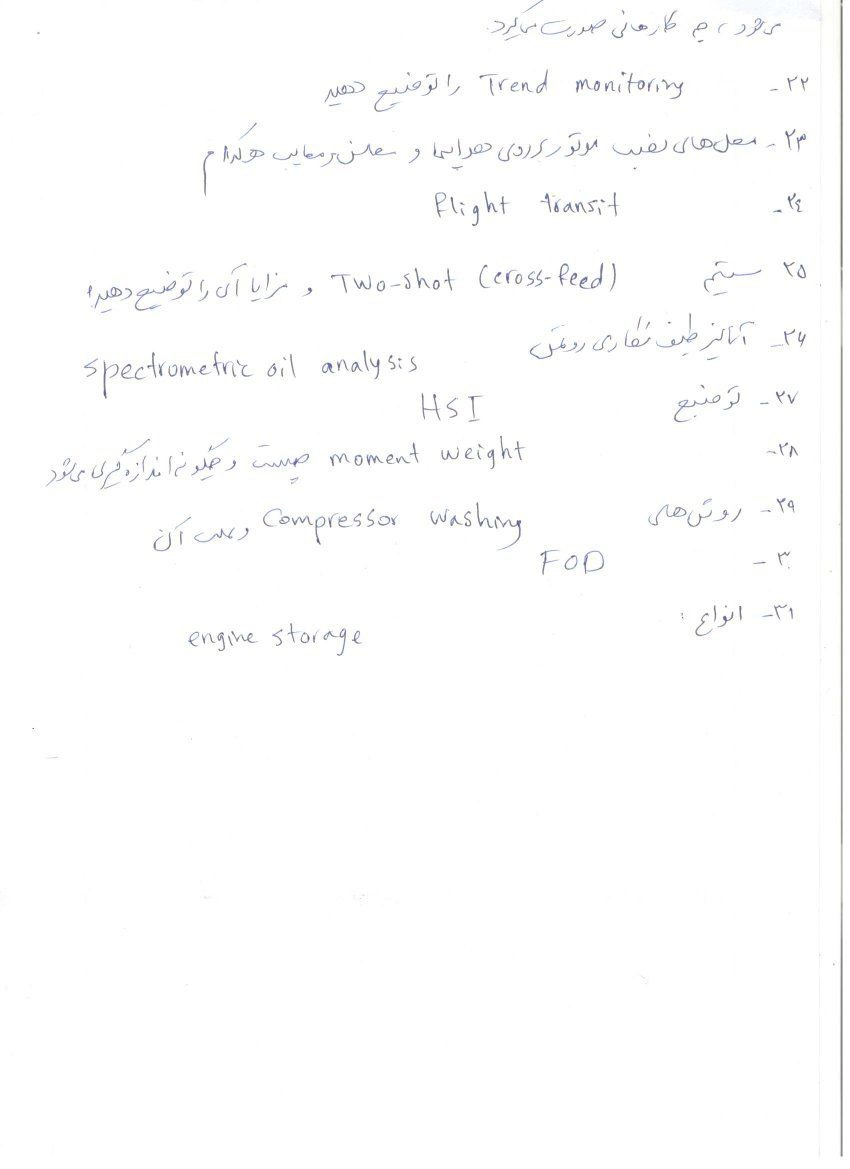 می‌شود، چه کارهائی صورت می‌گیرد.
۲۲- Trend monitoring را توضیح دهید
۲۳- محل‌های نصب موتور بر روی هواپیما و معایب هر کدام
۲۴- Flight transit
۲۵ سیستم Two-shot (cross-feed) و مزایا آن را توضیح دهید؟
۲۶- آنالیز طیف نگاری روغن spectrometric oil analysis
۲۷- توضیح HSI
۲۸- moment weight چیست و چگونه اندازه گیری می‌شود
۲۹- روش‌های Compressor washing و علت آن
۳۰- FOD
۳۱- انواع: engine storage